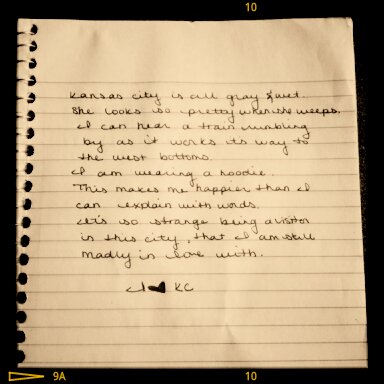 10
Kansas city is all gray & wet.
She looks so pretty when she weeps.
I can hear a train rumbling
by as it works its way to
the west bottoms.
I am wearing a hoodie.
This makes me happier than I
can explain with words.
It's so strange being a visitor
in this city, that I am still
madly in love with.
I ♥ KC
9A 10